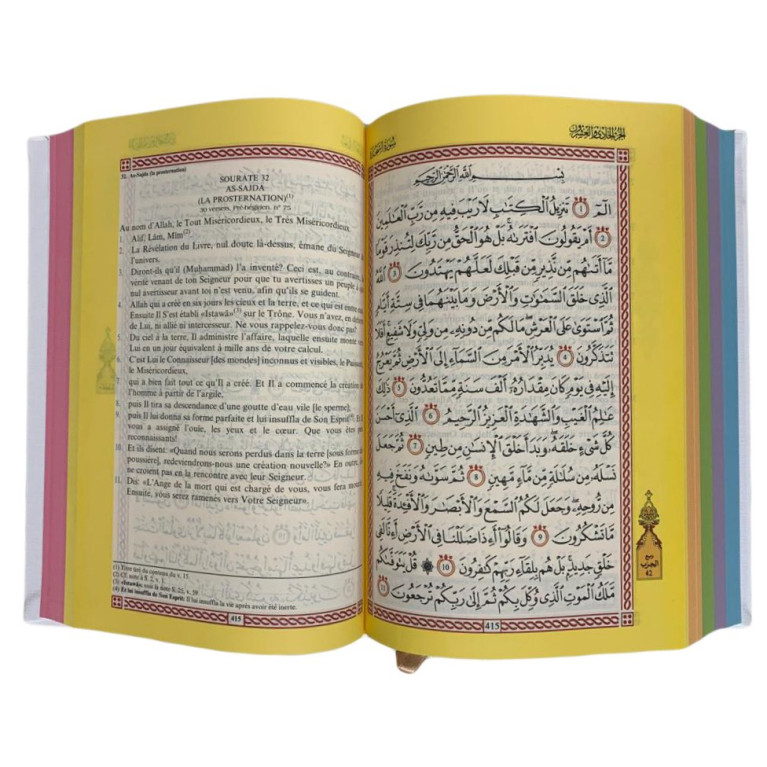 32. As-Sajda (la prosternation)
SOURATE 32
AS-SAJDA
(LA PROSTERNATION)(1)
30 versets, Pré-hégirien, n° 75
Au nom d'Allah, le Tout Miséricordieux, le Très Miséricordieux.
1. Alif, Lâm, Mîm(2)
2. La Révélation du Livre, nul doute là-dessus, émane du Seigneur
l'univers.
3. Diront-ils qu'il (Muhammad) l'a inventé? Ceci est, au contraire,
vérité venant de ton Seigneur pour que tu avertisses un peuple à
nul avertisseur avant toi n'est venu, afin qu'ils se guident.
4. Allah qui a créé en six jours les cieux et la terre, et ce qui est entre
Ensuite Il S'est établi «Istawâ»(3) sur le Trône. Vous n'avez, en dehors
de Lui, ni allié ni intercesseur. Ne vous rappelez-vous donc pas?
5. Du ciel à la terre, Il administre l'affaire, laquelle ensuite monte
Lui en un jour équivalent à mille ans de votre calcul.
6. C'est Lui le Connaisseur [des mondes] inconnus et visibles, le Puissant,
le Miséricordieux,
7. qui a bien fait tout ce qu'Il a créé. Et Il a commencé la création
l'homme à partir de l'argile,
8. puis Il tira sa descendance d'une goutte d'eau vile [le sperme];
9. puis Il lui donna sa forme parfaite et lui insuffla de Son Esprit(4). Et
vous a assigné l'ouïe, les yeux et le cœur. Que vous êtes
reconnaissants!
10. Et ils disent: «Quand nous serons perdus dans la terre [sous forme de
poussière], redeviendrons-nous une création nouvelle?» En outre,
ne croient pas en la rencontre avec leur Seigneur.
11. Dis: «L'Ange de la mort qui est chargé de vous, vous fera
Ensuite, vous serez ramenés vers Votre Seigneur».
(1) Titre tiré du contenu du v. 15.
(2) Cf. note à S. 2, v. 1.
(3) «Istawâ»: voir la note S. 25, v. 59.
(4) Et lui insuffla de Son Esprit: Il lui insuffla la vie après avoir été inerte.
415
الجزء الحادي والعشرون
بِسْمِ اللَّهِ الرَّحْمَٰنِ الرَّحِيمِ
الٓمٓ ١ تَنزِيلُ الْكِتَٰبِ لَا رَيْبَ فِيهِ مِن رَّبِّ الْعَٰلَمِينَ
٢ أَمْ يَقُولُونَ افْتَرَىٰهُ بَلْ هُوَ الْحَقُّ مِن رَّبِّكَ لِتُنذِرَ قَوْمًا
مَّا أَتَىٰهُم مِّن نَّذِيرٍ مِّن قَبْلِكَ لَعَلَّهُمْ يَهْتَدُونَ ٣ اللَّهُ
الَّذِي خَلَقَ السَّمَٰوَٰتِ وَالْأَرْضَ وَمَا بَيْنَهُمَا فِي سِتَّةِ أَيَّامٍ
ثُمَّ اسْتَوَىٰ عَلَى الْعَرْشِ مَا لَكُم مِّن دُونِهِ مِن وَلِيٍّ وَلَا شَفِيعٍ أَفَلَا
تَتَذَكَّرُونَ ٤ يُدَبِّرُ الْأَمْرَ مِنَ السَّمَاءِ إِلَى الْأَرْضِ ثُمَّ يَعْرُجُ
إِلَيْهِ فِي يَوْمٍ كَانَ مِقْدَارُهُ أَلْفَ سَنَةٍ مِّمَّا تَعُدُّونَ ٥ ذَٰلِكَ
عَٰلِمُ الْغَيْبِ وَالشَّهَٰدَةِ الْعَزِيزُ الرَّحِيمُ ٦ الَّذِي أَحْسَنَ
كُلَّ شَيْءٍ خَلَقَهُ وَبَدَأَ خَلْقَ الْإِنسَٰنِ مِن طِينٍ ٧ ثُمَّ جَعَلَ
نَسْلَهُ مِن سُلَٰلَةٍ مِّن مَّاءٍ مَّهِينٍ ٨ ثُمَّ سَوَّىٰهُ وَنَفَخَ فِيهِ
مِن رُّوحِهِ وَجَعَلَ لَكُمُ السَّمْعَ وَالْأَبْصَٰرَ وَالْأَفْئِدَةَ قَلِيلًا
مَّا تَشْكُرُونَ ٩ وَقَالُوا أَءِذَا ضَلَلْنَا فِي الْأَرْضِ أَءِنَّا لَفِي
خَلْقٍ جَدِيدٍ بَلْ هُم بِلِقَاءِ رَبِّهِمْ كَٰفِرُونَ ١٠ ۞ قُلْ يَتَوَفَّىٰكُم
مَّلَكُ الْمَوْتِ الَّذِي وُكِّلَ بِكُمْ ثُمَّ إِلَىٰ رَبِّكُمْ تُرْجَعُونَ ١١
ربع
الحزب
42
415